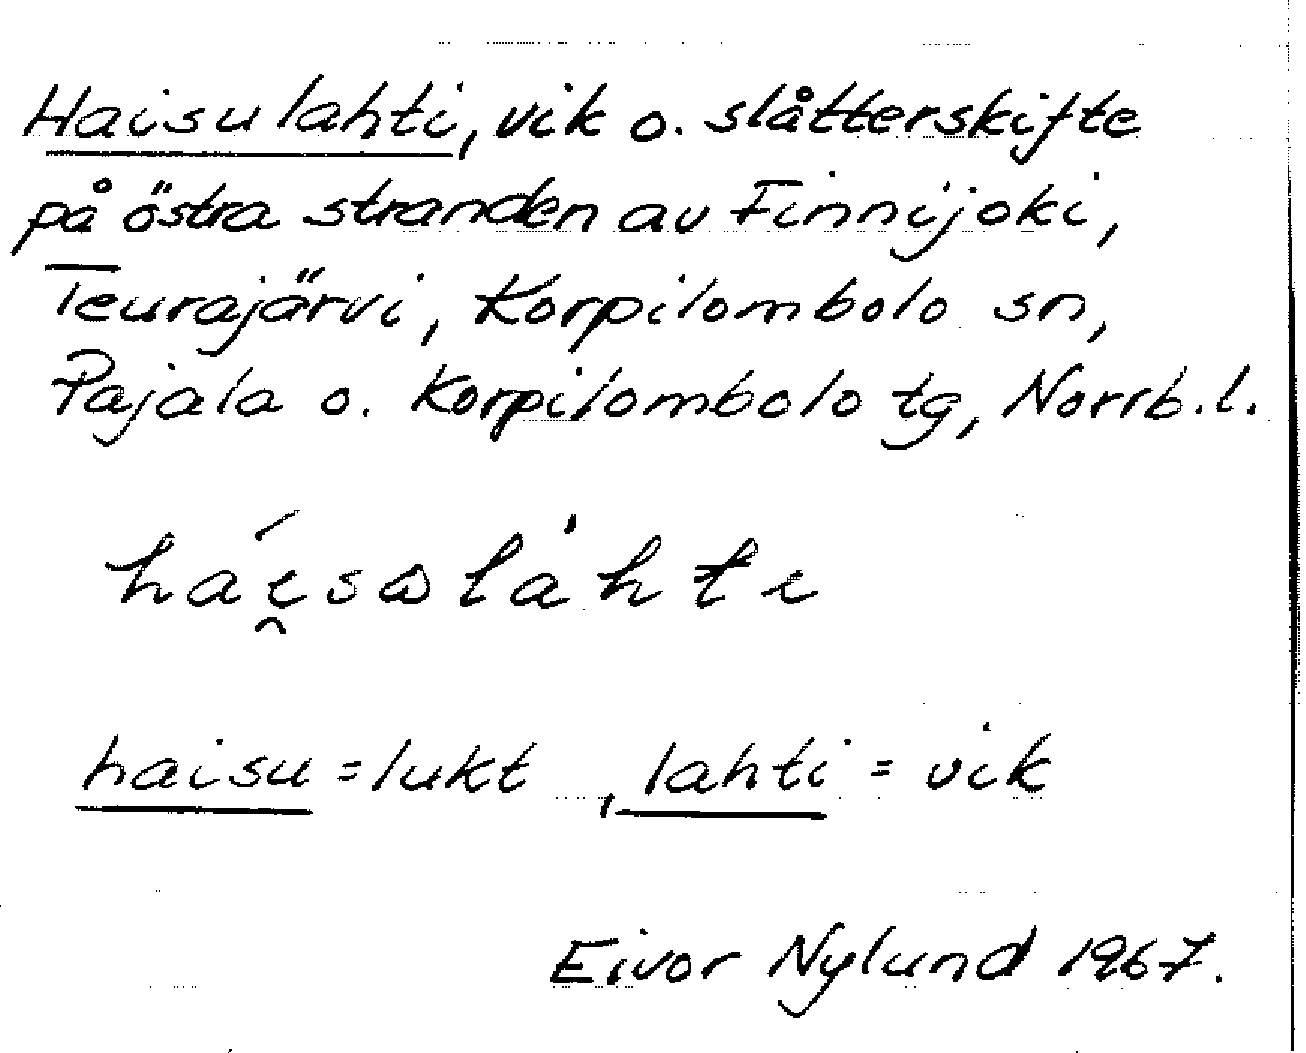 Haisulahti, vik o. slåtterskifte
på östra stranden av Finnijoki,
Teurajärvi, Korpilombolo sn,
Pajala o. Korpilombolo tg, Norrb. l.
há̀i̯sɷlàhti
haisu = lukt , lahti = vik
Eivor Nylund 1967.